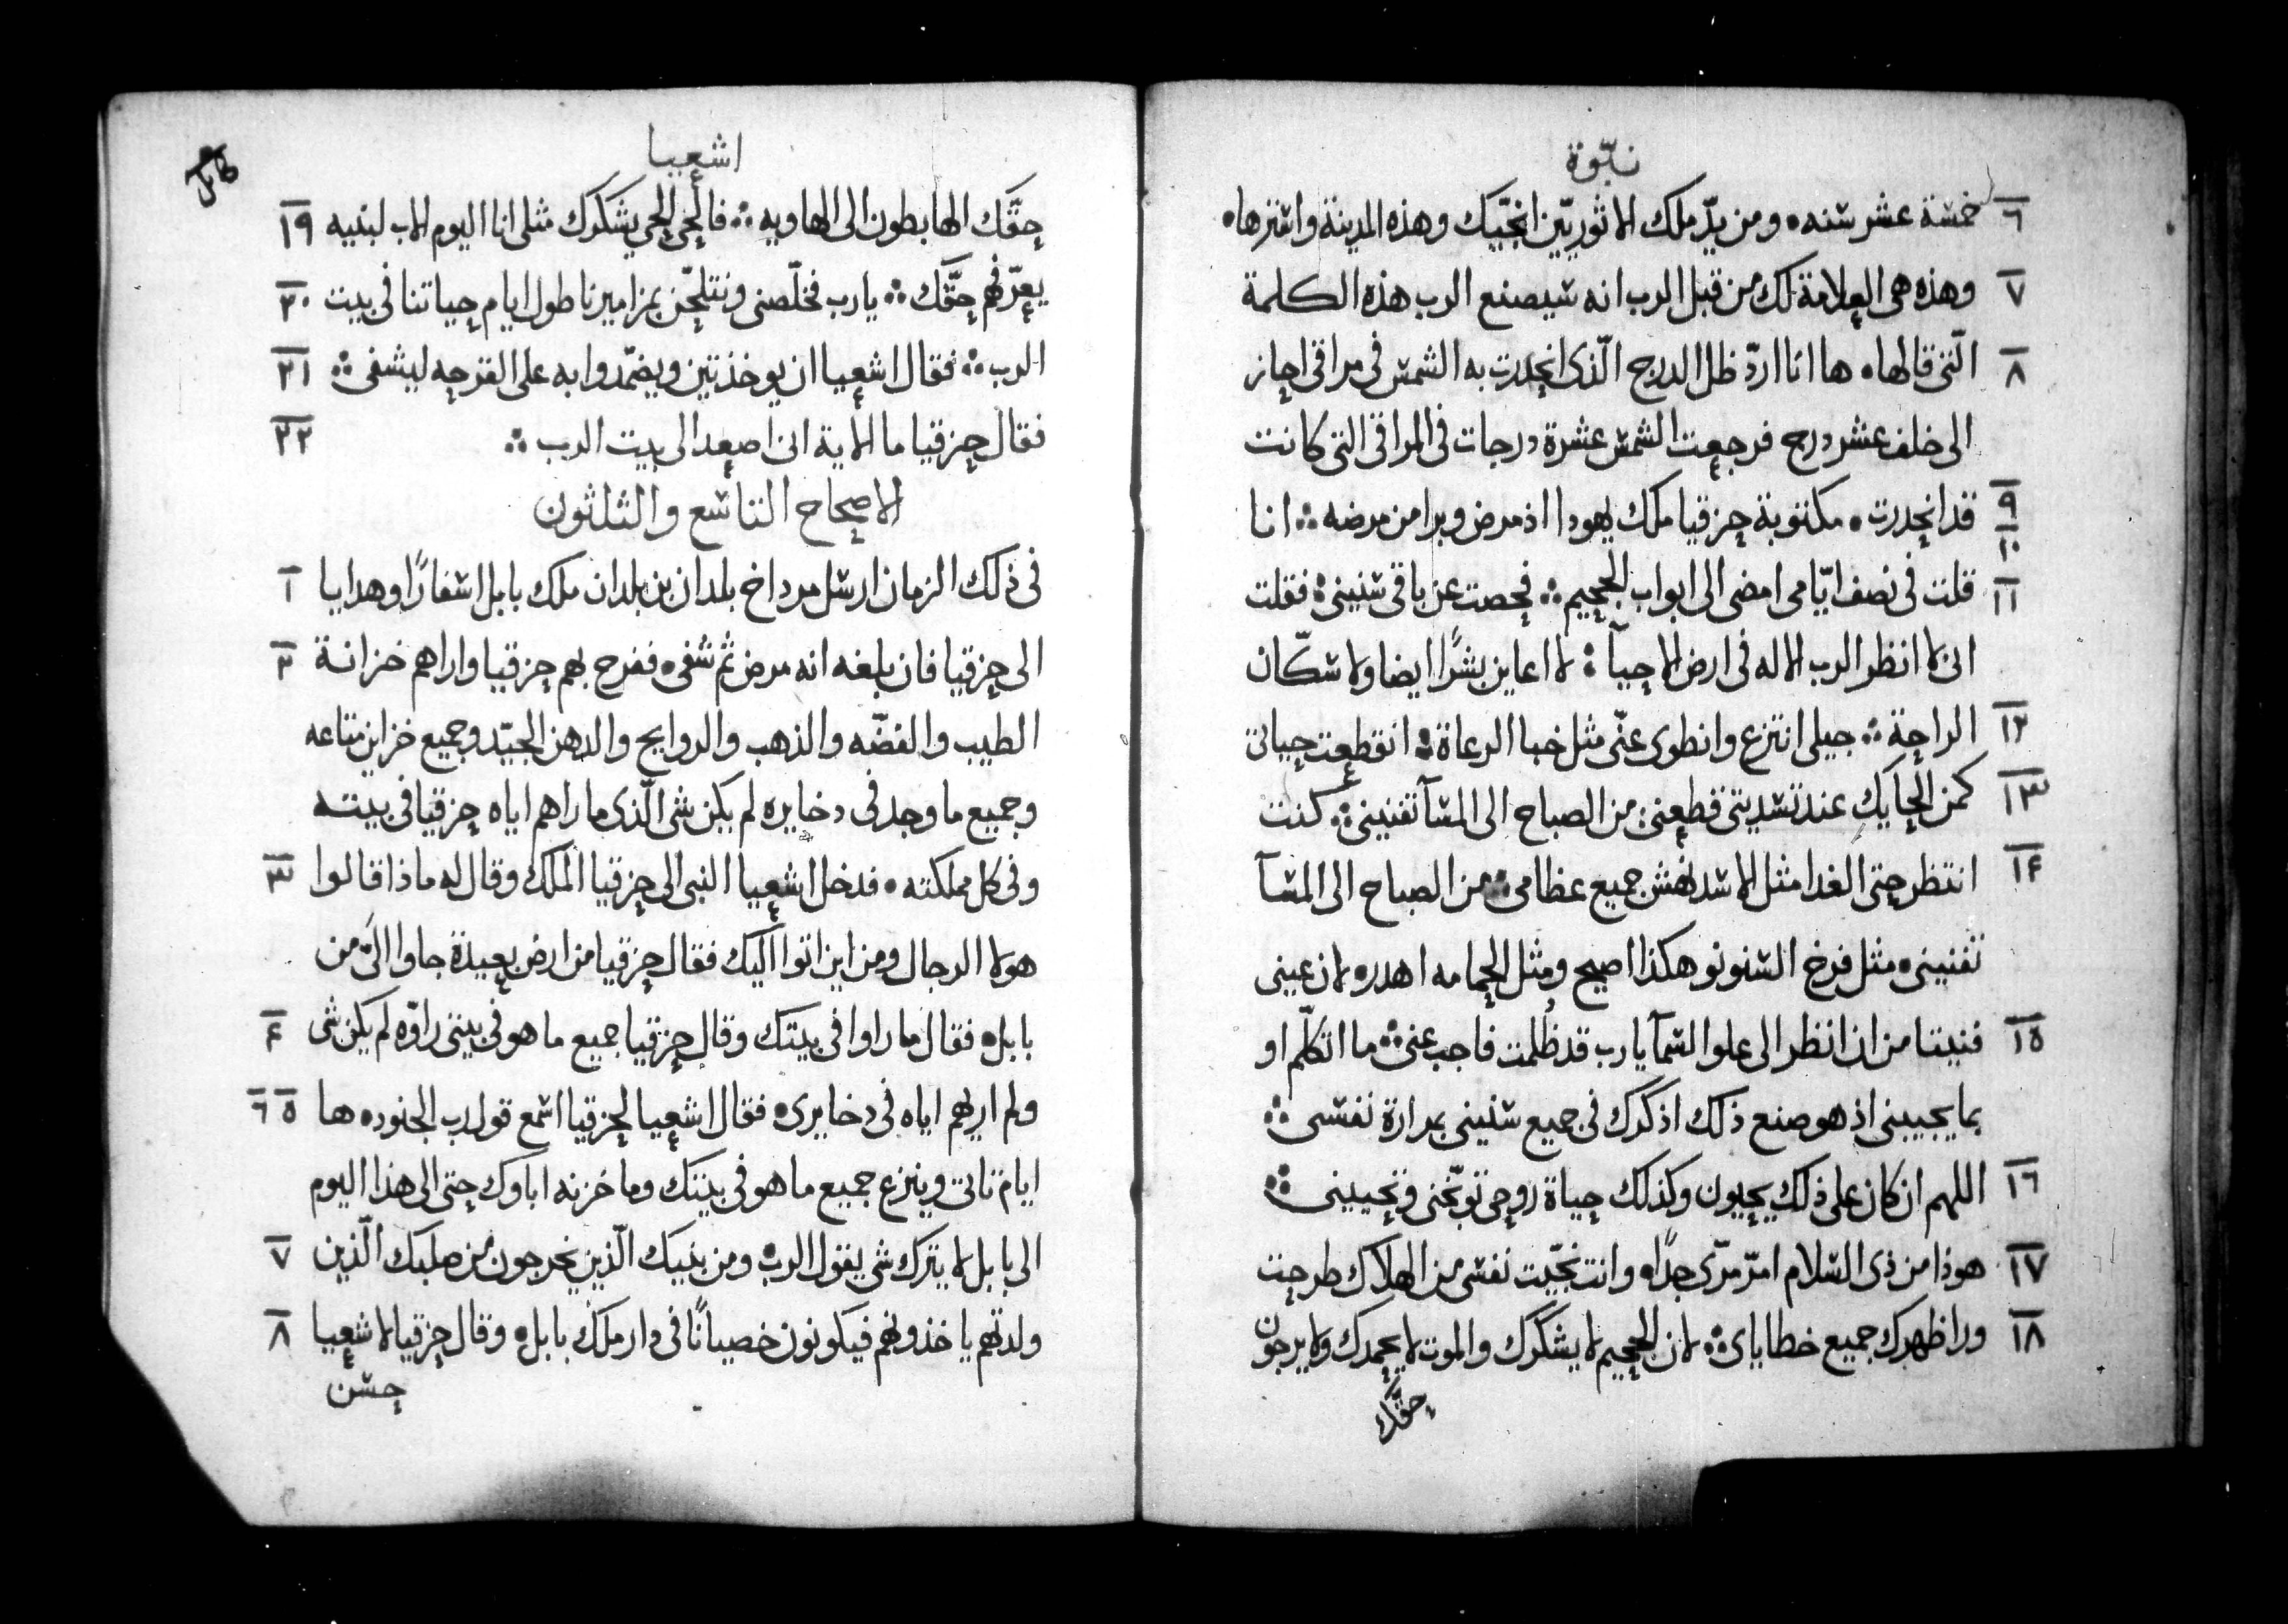 نبّوة
٦ خمسة عشر سنه • ومن يدّ ملك الاثوريّين انجّيك وهذه المدينة واسترها •
٧ وهذه هى العلامة لك من قبل الرب انه سيصنع الرب هذه الكلمة
٨ الّتى قالها • ها انا اردّ ظل الدرج الّذى انحدرت به الشمس فى مراقى احاز
الى خلف عشر درج فرجعت الشمس عشرة درجات فى المراقى التى كانت
٩ قد انحدرت • مكتوبة حزقيا ملك يهودا اذ مرض وبرا من مرضه ؞ انا
١٠
١١ قلت فى نصف ايّامى امضى الى ابواب الجحيم ؞ فحصت عن باقى سنينى ؞ فقلت
انى لا انظر الرب الاله فى ارض الاحيآ ؞ لا اعاين بشرًا ايضا ولا سكّان
١٢ الراحة ؞ جيلى انتزع وانطوى عنّى مثل خبا الرعاة ؞ انقطعت حياتى
١٣ كمن الحايك عند تسديتى قطعنى من الصباح الى المسآ تفنينى ؞ كنت
١۴ انتظر حتى الغدا مثل الاسد نهش جميع عظامى ؞ من الصباح الى المسآ
تفنينى • مثل فرخ السنونو هكذا اصيح ومثل الحمامه اهدر • لان عينى
١٥ فنيتا من ان انظر الى علو السمآ يارب قد ظُلمت فاجب عنى ؞ ما اتكلّم او
بما يجيبنى اذ هو صنع ذلك اذكرك فى جميع سنينى بمرارة نفسى ؞
١٦ اللهم ان كان على ذلك يحيون وكذلك حياة روحى توبّخنى وتحيينى ؞
١٧ هوذا من ذى السلام امرّ مرّى جدًا • وانت نجّيت نفسى من الهلاك طرحت
١٨ ورا ظهرك جميع خطاياى ؞ لان الجحيم لا يشكرك والموت لا يحمدك ولا يرجون
حقّك
اشعيا
حقّك الهابطون الى الهاويه ؞ فالحى الحى يشكرك مثلى انا اليوم الاب لبنيه ١٩
يعرّفهم حقّك ؞ يارب خلّصنى ونتلحّن بمزاميرنا طول ايام حياتنا فى بيت ٢٠
الرب ؞ فقال اشعيا ان يوخذ تين ويضمّدوا به على القرحه ليشفى ؞ ٢١
فقال حزقيا ما الاية انى اصعد الى بيت الرب ؞ ٢٢
الاصحاح التاسع والثلثون
فى ذلك الزمان ارسل مرداخ بلدان بن بلدان ملك بابل اسفارًا وهدايا ١
الى حزقيا فان بلغه انه مرض ثم شُفى • ففرح بهم حزقيا واراهم خزانة ٢
الطيب والفضّه والذهب والروايح والدهن الجيّد وجميع خزاين متاعه
وجميع ما وجد فى دخايره لم يكن شى الّذى ما راهم اياه حزقيا فى بيته
وفى كل مملكته • فدخل اشعيا النبى الى حزقيا الملك وقال له ماذا قالوا ٣
هولا الرجال ومن اين اتوا اليك فقال حزقيا من ارض بعيدة جاوا الىّ من
بابل • فقال ما راوا فى بيتك وقال حزقيا جميع ما هو فى بيتى راوّه لم يكن شى ۴
ولم اريهم اياه فى دخايرى • فقال اشعيا لحزقيا اسمع قول رب الجنود • ها ٥ ٦
ايام تاتى وينزع جميع ما هو فى بيتك وما خزنه اباوك حتى الى هذا اليوم
الى بابل لا يترك شى يقول الرب • ومن بنيك الّذين يخرجون من صلبك الّذين ٧
ولدتهم ياخذونهم فيكونون خصيانًا فى دار ملك بابل • وقال حزقيا لاشعيا ٨
حسن